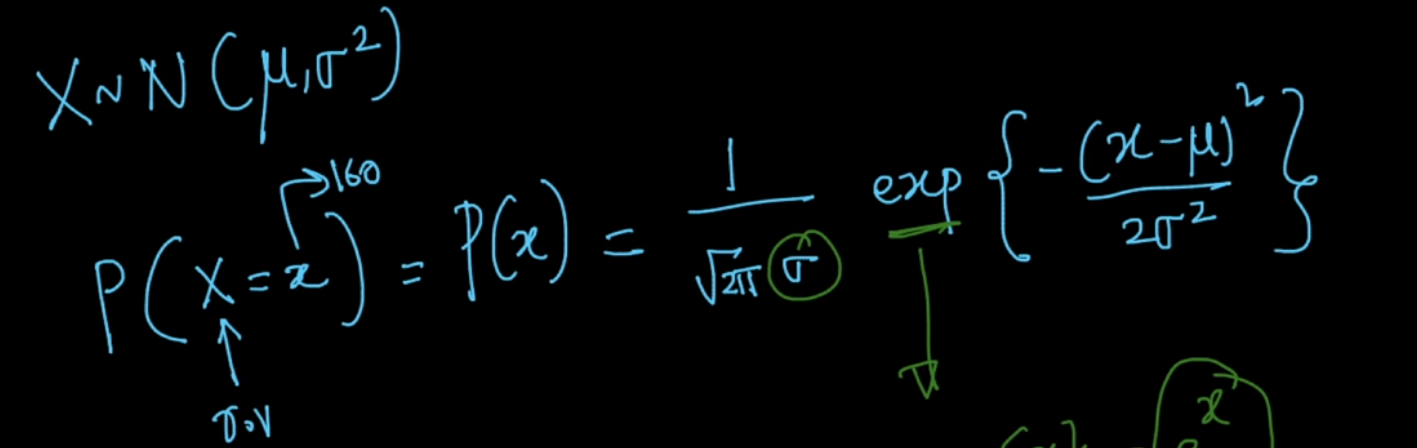 X ~ N (μ, σ²)
→ 160
P(X = x) = P(x) = 1 / √2π σ exp { - (x - μ)² / 2σ² }
r.v
x